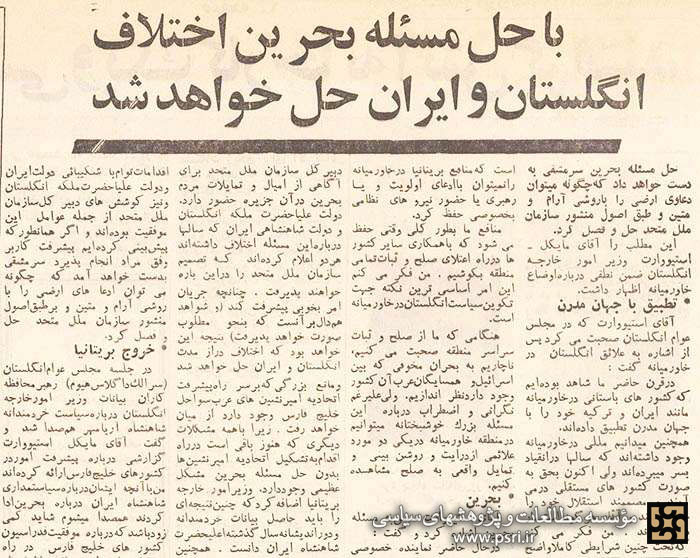 با حل مسئله بحرین اختلاف
انگلستان و ایران حل خواهد شد
حل مسئله بحرین سرمشقی به
دست خواهد داد که چگونه میتوان
دعاوی ارضی را باروشی آرام و
متین و طبق اصول منشور سازمان
ملل متحد حل و فصل کرد.
این مطلب را آقای مایکل ـ
استیووارت وزیر امور خارجه
انگلستان ضمن نطقی درباره اوضاع
خاورمیانه اظهار داشت.
• تطبیق با جهان مدرن
آقای استیووارت که در مجلس
عوام انگلستان صحبت می کرد پس
از اشاره به علائق انگلستان در
خاورمیانه گفت :
در قرن حاضر ما شاهد بوده ایم
که کشور های باستانی در خاورمیانه
مانند ایران و ترکیه خود را با
جهان مدرن تطبیق داده اند.
همچنین میدانیم مللی در خاورمیانه
وجود داشته اند که سالها در انقیاد
بسر میبرده اند ولی اکنون بحق به
صورت کشور های مستقلی درمی
استقلال خود را
است که منافع بریتانیا در خاورمیانه
را نمیتوان با ادعای اولویت و یا
رهبری یا حضور نیرو های نظامی
بخصوصی حفظ کرد.
منافع ما بطور کلی وقتی حفظ
می شود که با همکاری سایر کشور
ها در راه اعتلای صلح و ثبات تمامی
منطقه بکوشیم . من فکر می کنم
این امر اساسی ترین نکته جهت
تکوین سیاست انگلستان در خاورمیانه
است.
هنگامی که ما از صلح و ثبات
سراسر منطقه صحبت می کنیم،
ناچاریم به بحران مخوفی که بین
اسرائیل و همسایگان عرب آن کشور
وجود دارد نظر اندازیم. ولی علیرغم
نگرانی و اضطراب درباره این
مسئله بزرگ خوشبختانه میتوانیم
در منطقه خاورمیانه در یکی دو مورد
علائمی از درایت و روشن بینی و
تمایل واقعی به صلح مشاهده
کنیم.
• بحرین
در حال حاضر نماینده خصوصی
دبیر کل سازمان ملل متحد برای
آگاهی از امیال و تمایلات مردم
بحرین در آن جزیره حضور دارد.
دولت علیاحضرت ملکه انگلستان
و دولت شاهنشاهی ایران که سالها
درباره این مسئله اختلاف داشته اند
هر دو اعلام کرده اند که تصمیم
سازمان ملل متحد را در این باره
خواهند پذیرفت . چنانچه جریان
امر بخوبی پیشرفت کند (و شواهد
هم دال بر آنست که بنحو مطلوب
صورت خواهد پذیرفت) نتیجه این
خواهد بود که اختلاف دراز مدت
انگلستان و ایران حل خواهد شد
و مانع بزرگی که بر سر راه پیشرفت
اتحادیه امیرنشین های عرب سواحل
خلیج فارس وجود دارد از میان
خواهد رفت . زیرا با همه مشکلات
دیگری که هنوز باقی است در راه
اقدام به تشکیل اتحادیه امیرنشین ها
بدون حل مسئله بحرین مشکل
عظیمی وجود دارد. وزیر امور خارجه
بریتانیا اضافه کرد که چنین نتیجه ای
را باید حاصل بیانات خردمندانه
و دوراندیشانه سال گذشته اعلیحضرت
شاهنشاه ایران دانست . همچنین
اقدامات توام با شکیبائی دولت ایران
و دولت علیاحضرت ملکه انگلستان
و نیز کوشش های دبیر کل سازمان
ملل متحد از جمله عوامل این
موفقیت بوده اند و اگر همانطور که
پیش بینی کرده ایم پیشرفت کار بر
وفق مراد انجام پذیرد سرمشقی
بدست خواهد آمد که چگونه
می توان ادعا های ارضی را با
روشی آرام و متین و بر طبق اصول
منشور سازمان ملل متحد حل
و فصل کرد.
• خروج بریتانیا
در جلسه مجلس عوام انگلستان
(سر الک داگلاس هیوم) رهبر محافظه
کاران بیانات وزیر امور خارجه
انگلستان درباره سیاست خردمندانه
شاهنشاه آریامهر هم صدا شد و
گفت آقای مایکل استیووارت
گزارشی درباره پیشرفت امور در
کشورهای خلیج فارس ارائه کرده اند
من با آنچه ایشان درباره سیاستمداری
شاهنشاه ایران درباره بحرین ادا
کردند همصدا میشوم شاید کمی
زود باشد که درباره موفقیت فدراسیون
کشور های خلیج فارس در راه
مؤسسه مطالعات و پژوهشهای سیاسی
www.psri.ir